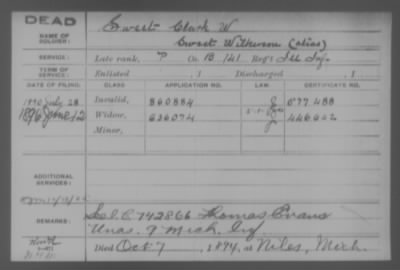 DEAD
NAME OF SOLDIER: Sweet Clark W
Sweet Wilkerson (alias)
SERVICE: Late rank, ? Co. B 141 Reg't Ill Inf.
TERM OF SERVICE: Enlisted , 1 Discharged , 1
DATE OF FILING. CLASS APPLICATION NO. LAW. CERTIFICATE NO.
1890 July 28 Invalid, 860884 677488
1896 June 12 Widow, 636074 446602
Minor,
ADDITIONAL SERVICES:
REMARKS: 742866 Thomas Evans
Unas. 9 Mich. Inf
Died Oct 7, 1894, at Niles, Mich.